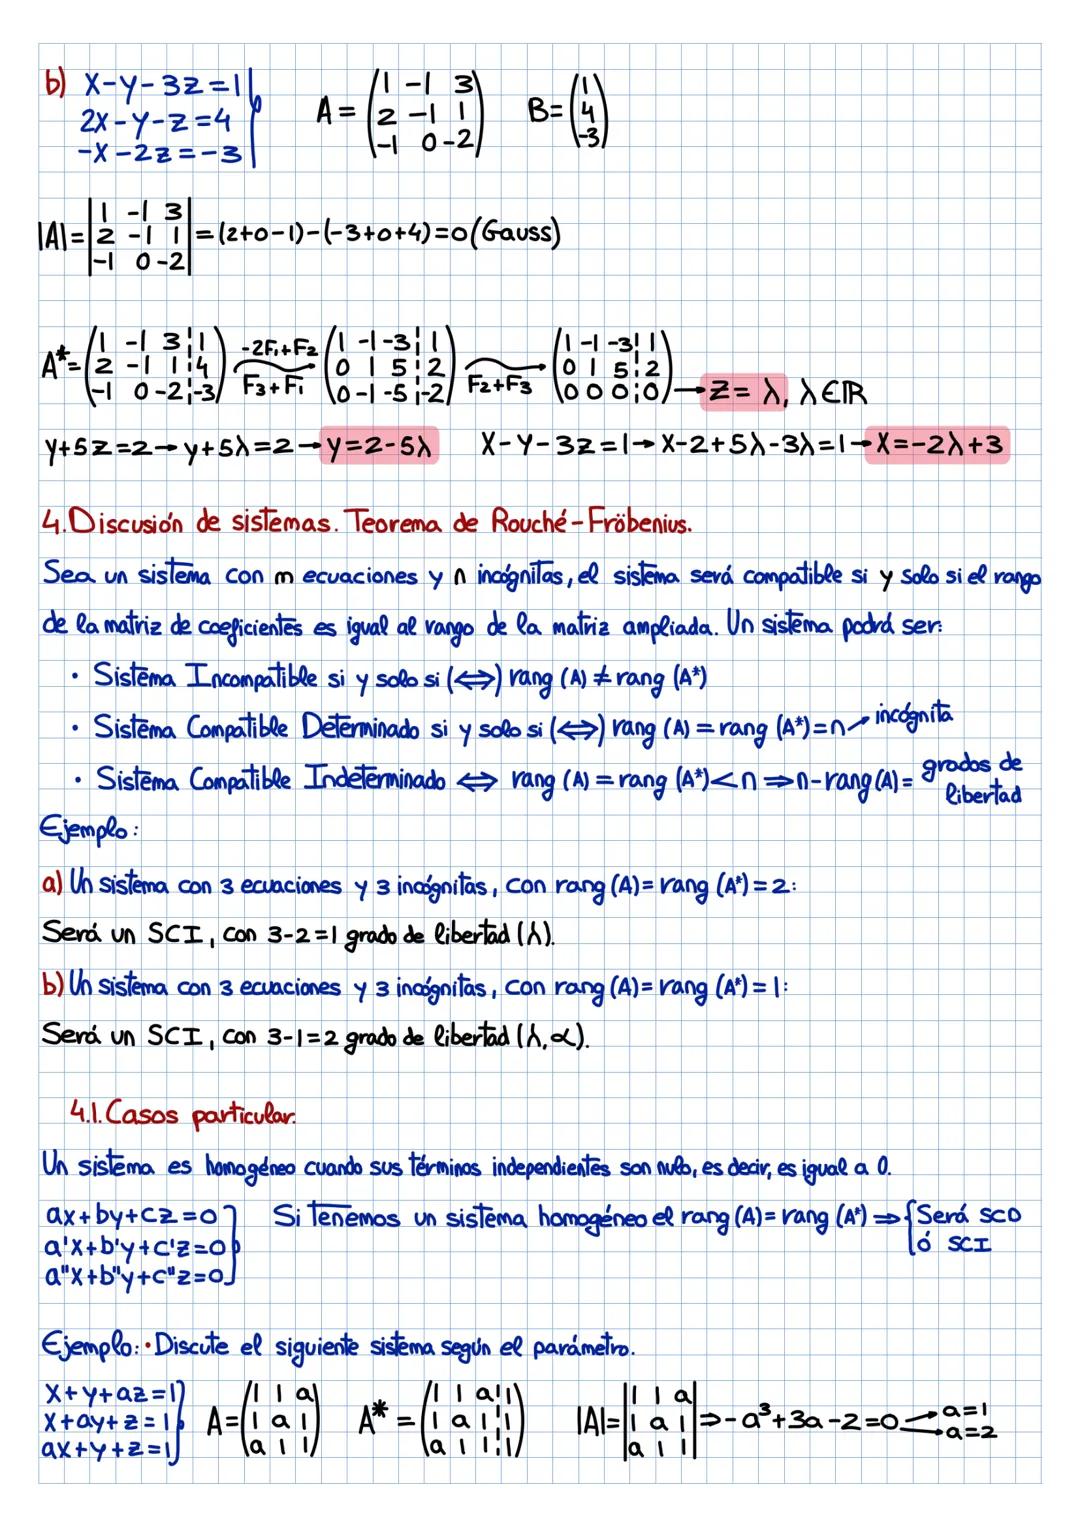 b) x-y-3z=1
2x-y-z=4
-x-2z=-3
A= (1 -1 3
2 -1 1
-1 0 -2)
B= (1
4
-3)
|A|= |1 -1 3
2 -1 1
-1 0 -2| = (2+0-1)-(-3+0+4)=0 (Gauss)
A*= (1 -1 3 ¦ 1
2 -1 1 ¦ 4
-1 0 -2 ¦ -3)
-2F₁+F₂
F₃+F₁
(1 -1 -3 ¦ 1
0 1 5 ¦ 2
0 -1 -5 ¦ -2)
F₂+F₃
(1 -1 -3 ¦ 1
0 1 5 ¦ 2
0 0 0 ¦ 0) → z= λ, λ∈ℝ
y+5z=2→y+5λ=2→y=2-5λ x-y-3z=1→x-2+5λ-3λ=1→x=-2λ+3
4.Discusión de sistemas. Teorema de Rouché-Fröbenius.
Sea un sistema con m ecuaciones y n incógnitas, el sistema será compatible si y solo si el rango
de la matriz de coeficientes es igual al rango de la matriz ampliada. Un sistema podrá ser:
· Sistema Incompatible si y solo si (⟺) rang (A) ≠ rang (A*)
· Sistema Compatible Determinado si y solo si (⟺) rang (A) = rang (A*)=n → incógnita
· Sistema Compatible Indeterminado ⟺ rang (A) = rang (A*)<n ⟹n-rang(A)= grados de
libertad
Ejemplo:
a) Un sistema con 3 ecuaciones y 3 incógnitas, con rang (A)= rang (A*)=2:
Será un SCI, con 3-2=1 grado de libertad (λ).
b) Un sistema con 3 ecuaciones y 3 incógnitas, con rang (A)= rang (A*)=1:
Será un SCI, con 3-1=2 grado de libertad (λ,α).
4.1.Casos particular.
Un sistema es homogéneo cuando sus términos independientes son nulo, es decir, es igual a 0.
ax+by+cz=0
a'x+b'y+c'z=0
a"x+b"y+c"z=0
Si tenemos un sistema homogéneo el rang (A)= rang (A*) ⟹ {Será SCD
ó SCI
Ejemplo: · Discute el siguiente sistema según el parámetro.
x+y+az=1
x+ay+z=1
ax+y+z=1
A= (1 1 a
1 a 1
a 1 1)
A* = (1 1 a ¦ 1
1 a 1 ¦ 1
a 1 1 ¦ 1)
|A|= |1 1 a
1 a 1
a 1 1| ⟹ -a³+3a-2=0 → a=1
→ a=2